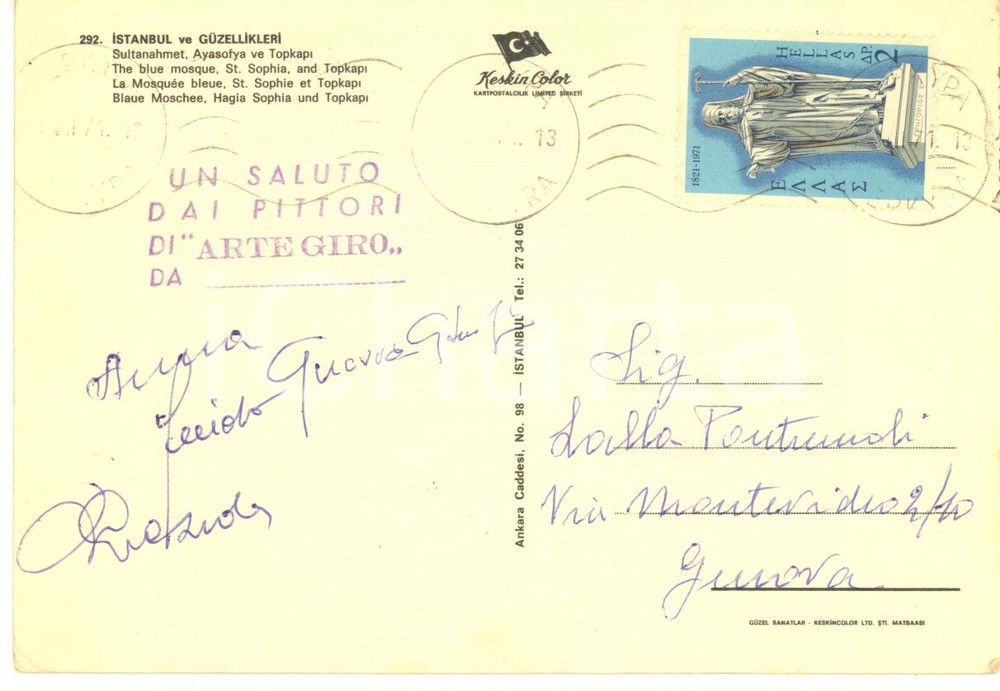 292. İSTANBUL ve GÜZELLİKLERİ
Sultanahmet, Ayasofya ve Topkapı
The blue mosque, St. Sophia, and Topkapı
La Mosquée bleue, St. Sophie et Topkapı
Blaue Moschee, Hagia Sophia und Topkapı
Keskin Color
KARTPOSTALCILIK LIMITED ŞİRKETİ
HELLAS ΔΡ. 2
1821-1971
ΕΛΛΑΣ
13
1. 13
UN SALUTO
DAI PITTORI
DI "ARTE GIRO"
DA
Anna
Guerra
Ankara Caddesi, No. 98 — İSTANBUL Tel.: 27 34 06
Sig.
Lalla Pontremoli
Via Montevideo 2/10
Genova
GÜZEL SANATLAR - KESKİNCOLOR LTD. ŞTİ. MATBAASI
iCharta